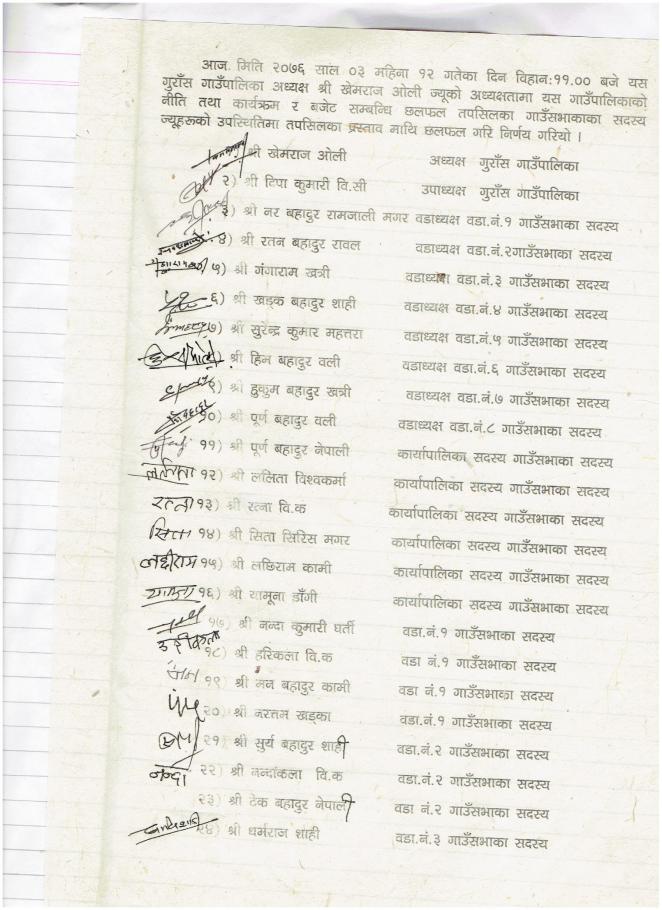 आज मिति २०७६ साल ०३ महिना १२ गतेका दिन विहान:११.०० बजे यस
गुराँस गाउँपालिका अध्यक्ष श्री खेमराज ओली ज्यूको अध्यक्षतामा यस गाउँपालिकाको
नीति तथा कार्यक्रम र बजेट सम्बन्धि छलफल तपसिलका गाउँसभाकाका सदस्य
ज्यूहरूको उपस्थितिमा तपसिलका प्रस्ताव माथि छलफल गरि निर्णय गरियो ।
श्री खेमराज ओली अध्यक्ष गुराँस गाउँपालिका
२) श्री टिपा कुमारी वि.सी उपाध्यक्ष गुराँस गाउँपालिका
३) श्री नर बहादुर रामजाली मगर वडाध्यक्ष वडा.नं.१ गाउँसभाका सदस्य
४) श्री रतन बहादुर रावल वडाध्यक्ष वडा.नं.२गाउँसभाका सदस्य
५) श्री गंगाराम खत्री वडाध्यक्ष वडा.नं.३ गाउँसभाका सदस्य
६) श्री खड्क बहादुर शाही वडाध्यक्ष वडा.नं.४ गाउँसभाका सदस्य
७) श्री सुरेन्द्र कुमार महत्तरा वडाध्यक्ष वडा.नं.५ गाउँसभाका सदस्य
श्री हिन बहादुर वली वडाध्यक्ष वडा.नं.६ गाउँसभाका सदस्य
९) श्री हुकुम बहादुर खत्री वडाध्यक्ष वडा.नं.७ गाउँसभाका सदस्य
१०) श्री पूर्ण बहादुर वली वडाध्यक्ष वडा.नं.८ गाउँसभाका सदस्य
११) श्री पूर्ण बहादुर नेपाली कार्यापालिका सदस्य गाउँसभाका सदस्य
ललिता १२) श्री ललिता विश्वकर्मा कार्यापालिका सदस्य गाउँसभाका सदस्य
रत्ना १३) श्री रत्ना वि.क कार्यापालिका सदस्य गाउँसभाका सदस्य
सिता १४) श्री सिता सिरिस मगर कार्यापालिका सदस्य गाउँसभाका सदस्य
लछीराम १५) श्री लछिराम कामी कार्यापालिका सदस्य गाउँसभाका सदस्य
१६) श्री यामूना डाँगी कार्यापालिका सदस्य गाउँसभाका सदस्य
१७) श्री नन्दा कुमारी घर्ती वडा.नं.१ गाउँसभाका सदस्य
१८) श्री हरिकला वि.क वडा नं.१ गाउँसभाका सदस्य
१९) श्री मन बहादुर कामी वडा नं.१ गाउँसभाका सदस्य
२०) श्री नरत्तम खड्का वडा.नं.१ गाउँसभाका सदस्य
२१) श्री सुर्य बहादुर शाही वडा.नं.२ गाउँसभाका सदस्य
नन्दा २२) श्री नन्दाकला वि.क वडा.नं.२ गाउँसभाका सदस्य
२३) श्री टेक बहादुर नेपाली वडा नं.२ गाउँसभाका सदस्य
२४) श्री धर्मराज शाही वडा.नं.३ गाउँसभाका सदस्य